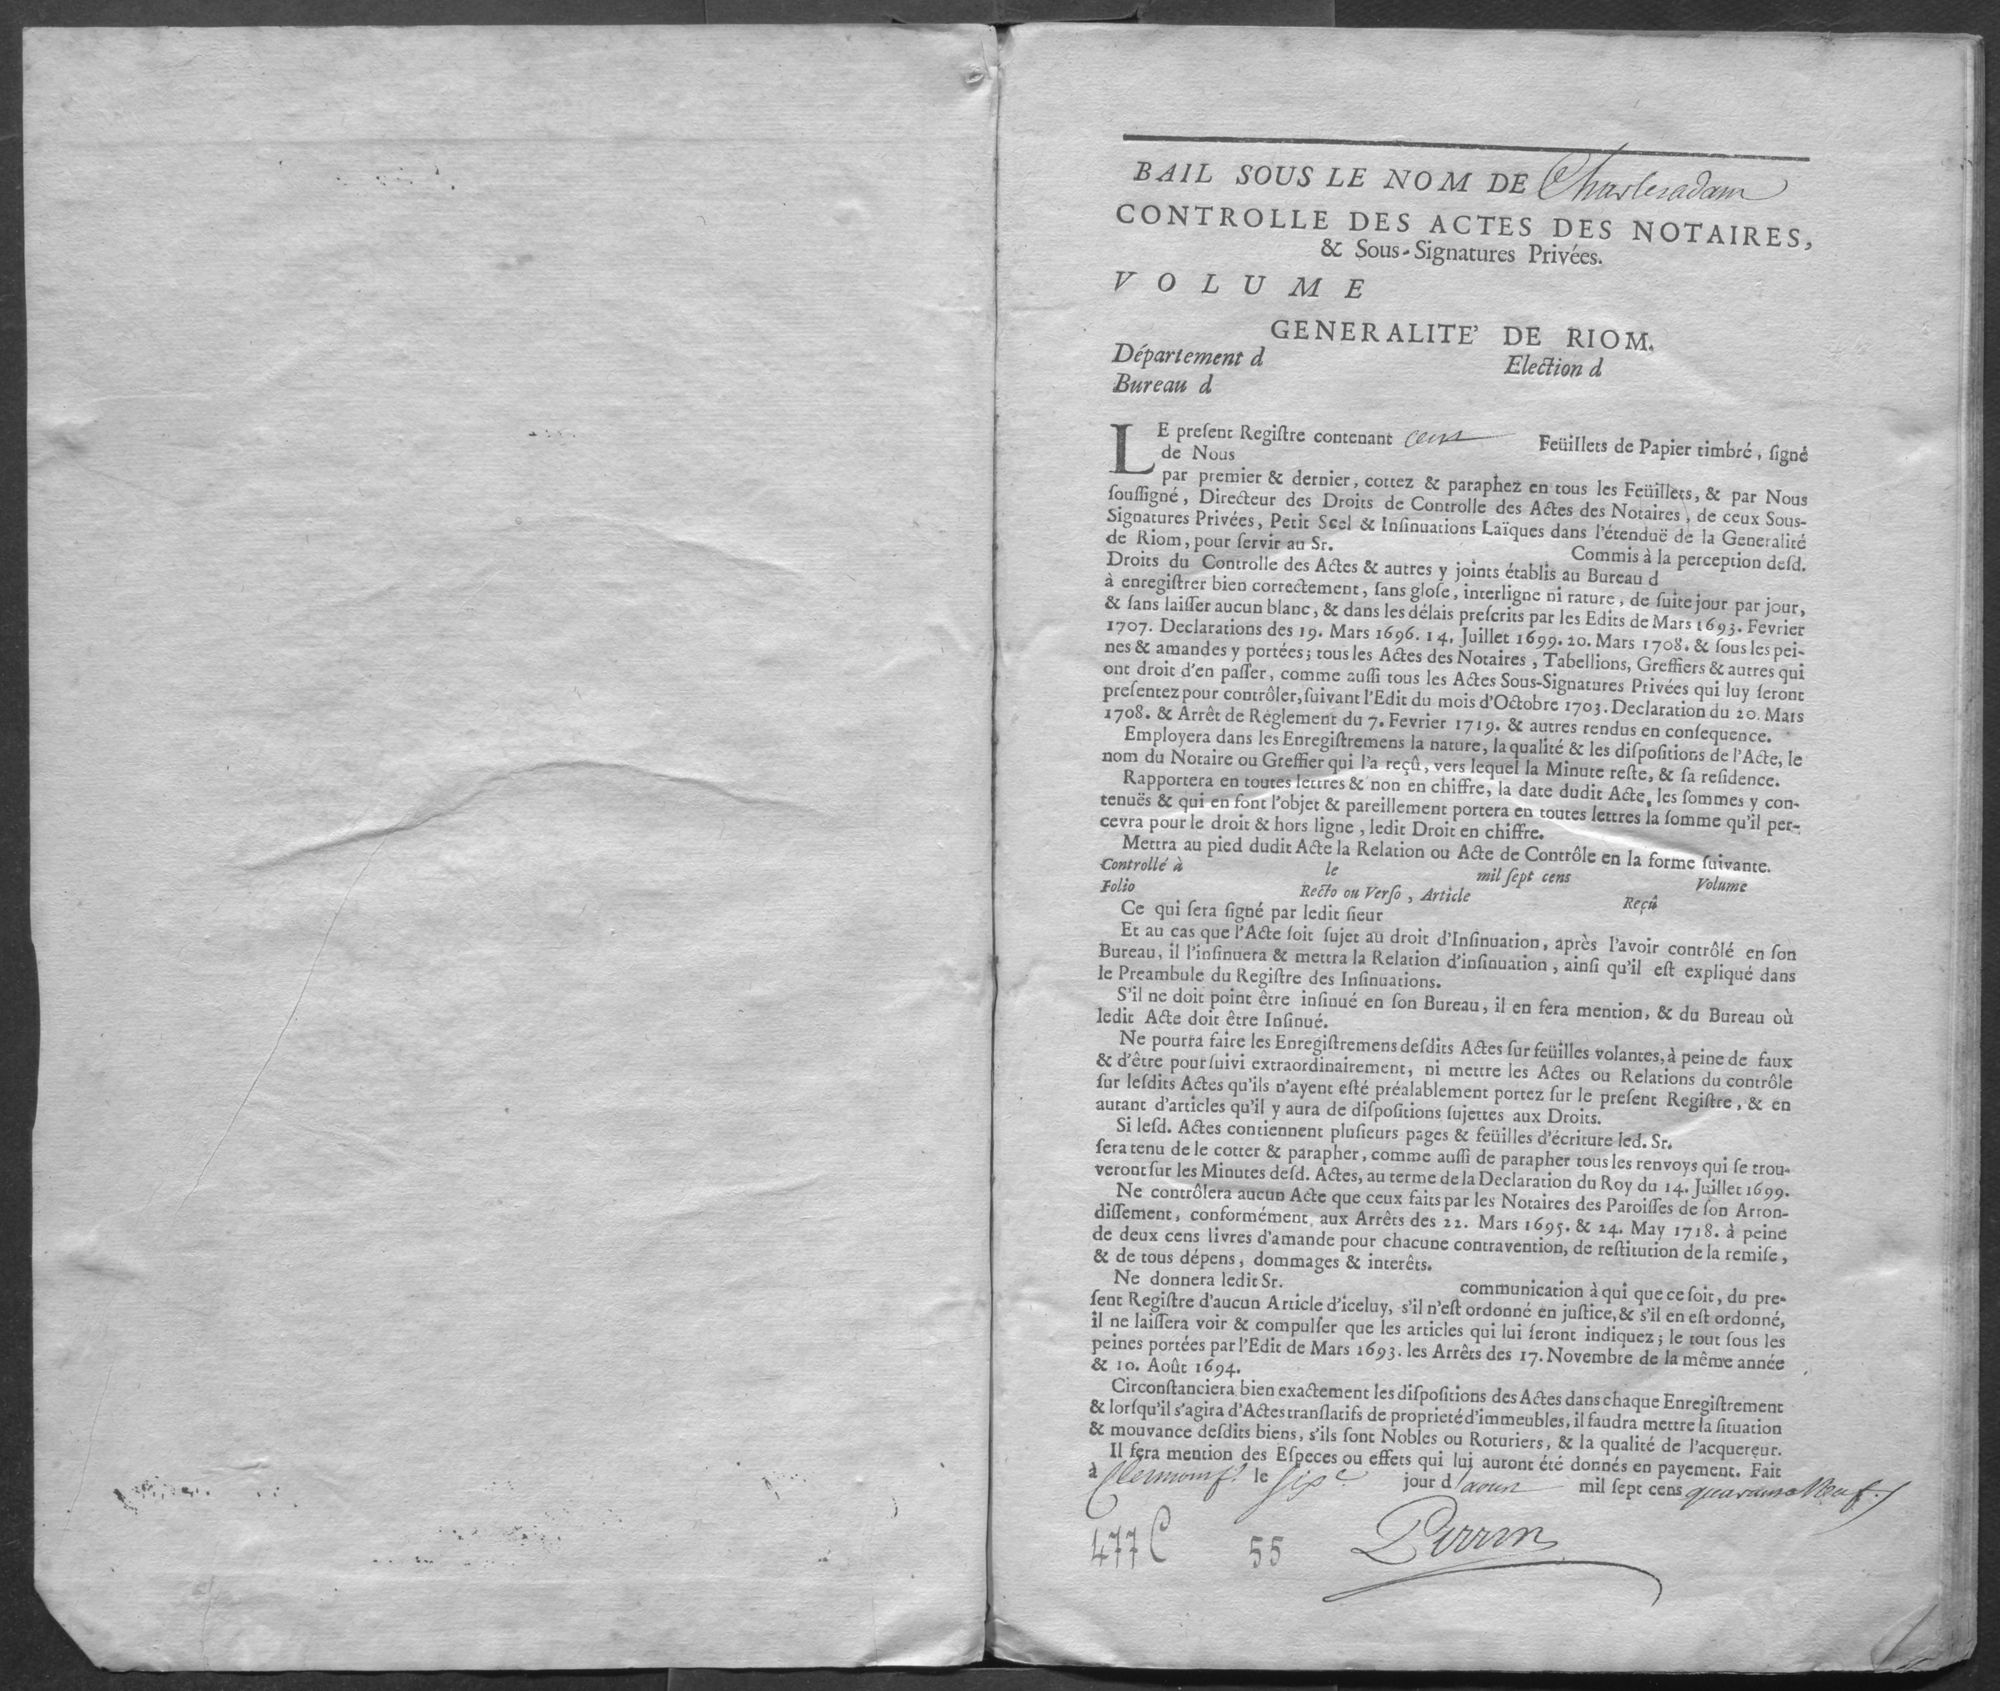 BAIL SOUS LE NOM DE Charles adam
CONTROLLE DES ACTES DES NOTAIRES,
& Sous-Signatures Privées.
VOLUME
GENERALITE' DE RIOM.
Département d Election d
Bureau d
LE preſent Regiſtre contenant cent Feüillets de Papier timbré, ſigné
de Nous
par premier & dernier, cottez & paraphez en tous les Feüillets, & par Nous
ſouſſigné, Directeur des Droits de Controlle des Actes des Notaires, de ceux Sous-
Signatures Privées, Petit Scel & Inſinuations Laïques dans l'étenduë de la Generalité
de Riom, pour ſervir au Sr. Commis à la perception deſd.
Droits du Controlle des Actes & autres y joints établis au Bureau d
à enregiſtrer bien correctement, ſans gloſe, interligne ni rature, de ſuite jour par jour,
& ſans laiſſer aucun blanc, & dans les délais preſcrits par les Edits de Mars 1693. Fevrier
1707. Declarations des 19. Mars 1696. 14. Juillet 1699. 20. Mars 1708. & ſous les pei-
nes & amandes y portées; tous les Actes des Notaires, Tabellions, Greffiers & autres qui
ont droit d'en paſſer, comme auſſi tous les Actes Sous-Signatures Privées qui luy ſeront
preſentez pour contrôler, ſuivant l'Edit du mois d'Octobre 1703. Declaration du 20. Mars
1708. & Arrêt de Réglement du 7. Fevrier 1719. & autres rendus en conſequence.
Employera dans les Enregiſtremens la nature, la qualité & les diſpoſitions de l'Acte, le
nom du Notaire ou Greffier qui l'a reçû, vers lequel la Minute reſte, & ſa reſidence.
Rapportera en toutes lettres & non en chiffre, la date dudit Acte, les ſommes y con-
tenuës & qui en ſont l'objet & pareillement portera en toutes lettres la ſomme qu'il per-
cevra pour le droit & hors ligne, ledit Droit en chiffre.
Mettra au pied dudit Acte la Relation ou Acte de Contrôle en la forme ſuivante.
Controllé à le mil ſept cens Volume
Folio Recto ou Verſo, Article Reçû
Ce qui ſera ſigné par ledit ſieur
Et au cas que l'Acte ſoit ſujet au droit d'Inſinuation, après l'avoir contrôlé en ſon
Bureau, il l'inſinuera & mettra la Relation d'inſinuation, ainſi qu'il eſt expliqué dans
le Preambule du Regiſtre des Inſinuations.
S'il ne doit point être inſinué en ſon Bureau, il en fera mention, & du Bureau où
ledit Acte doit être Inſinué.
Ne pourra faire les Enregiſtremens deſdits Actes ſur feüilles volantes, à peine de faux
& d'être pourſuivi extraordinairement, ni mettre les Actes ou Relations du contrôle
ſur leſdits Actes qu'ils n'ayent eſté préalablement portez ſur le preſent Regiſtre, & en
autant d'articles qu'il y aura de diſpoſitions ſujettes aux Droits.
Si leſd. Actes contiennent pluſieurs pages & feüilles d'écriture led. Sr.
ſera tenu de le cotter & parapher, comme auſſi de parapher tous les renvoys qui ſe trou-
veront ſur les Minutes deſd. Actes, au terme de la Declaration du Roy du 14. Juillet 1699.
Ne contrôlera aucun Acte que ceux faits par les Notaires des Paroiſſes de ſon Arron-
diſſement, conformément aux Arrêts des 22. Mars 1695. & 24. May 1718. à peine
de deux cens livres d'amande pour chacune contravention, de reſtitution de la remiſe,
& de tous dépens, dommages & interêts.
Ne donnera ledit Sr. communication à qui que ce ſoit, du pre-
ſent Regiſtre d'aucun Article d'iceluy, s'il n'eſt ordonné en juſtice, & s'il en eſt ordonné,
il ne laiſſera voir & compulſer que les articles qui lui ſeront indiquez; le tout ſous les
peines portées par l'Edit de Mars 1693. les Arrêts des 17. Novembre de la même année
& 10. Août 1694.
Circonſtanciera bien exactement les diſpoſitions des Actes dans chaque Enregiſtrement
& lorſqu'il s'agira d'Actes tranſlatifs de proprieté d'immeubles, il faudra mettre la ſituation
& mouvance deſdits biens, s'ils ſont Nobles ou Roturiers, & la qualité de l'acquereur.
Il fera mention des Eſpeces ou effets qui lui auront été donnés en payement. Fait
à Clermont f. le ſixe jour d'aoust mil ſept cens quarante Neuf.
477 C 55 Perrin